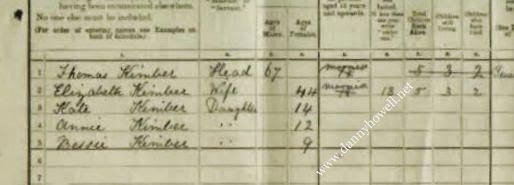 having been enumerated elsewhere.
No one else must be included.
(For order of entering names see Examples on back of Schedule.)
"Servant."
Ages of Males.
Ages of Females.
and upwards.
Total Children Born Alive.
Children still Living.
Children who have Died.
1 Thomas Kimber Head 67 5 3 2
2 Elizabeth Kimber Wife 44 married 18 5 3 2
3 Kate Kimber Daughter 14
4 Annie Kimber " 12
5 Bessie Kimber " 9
6
7
www.dannyhowell.net